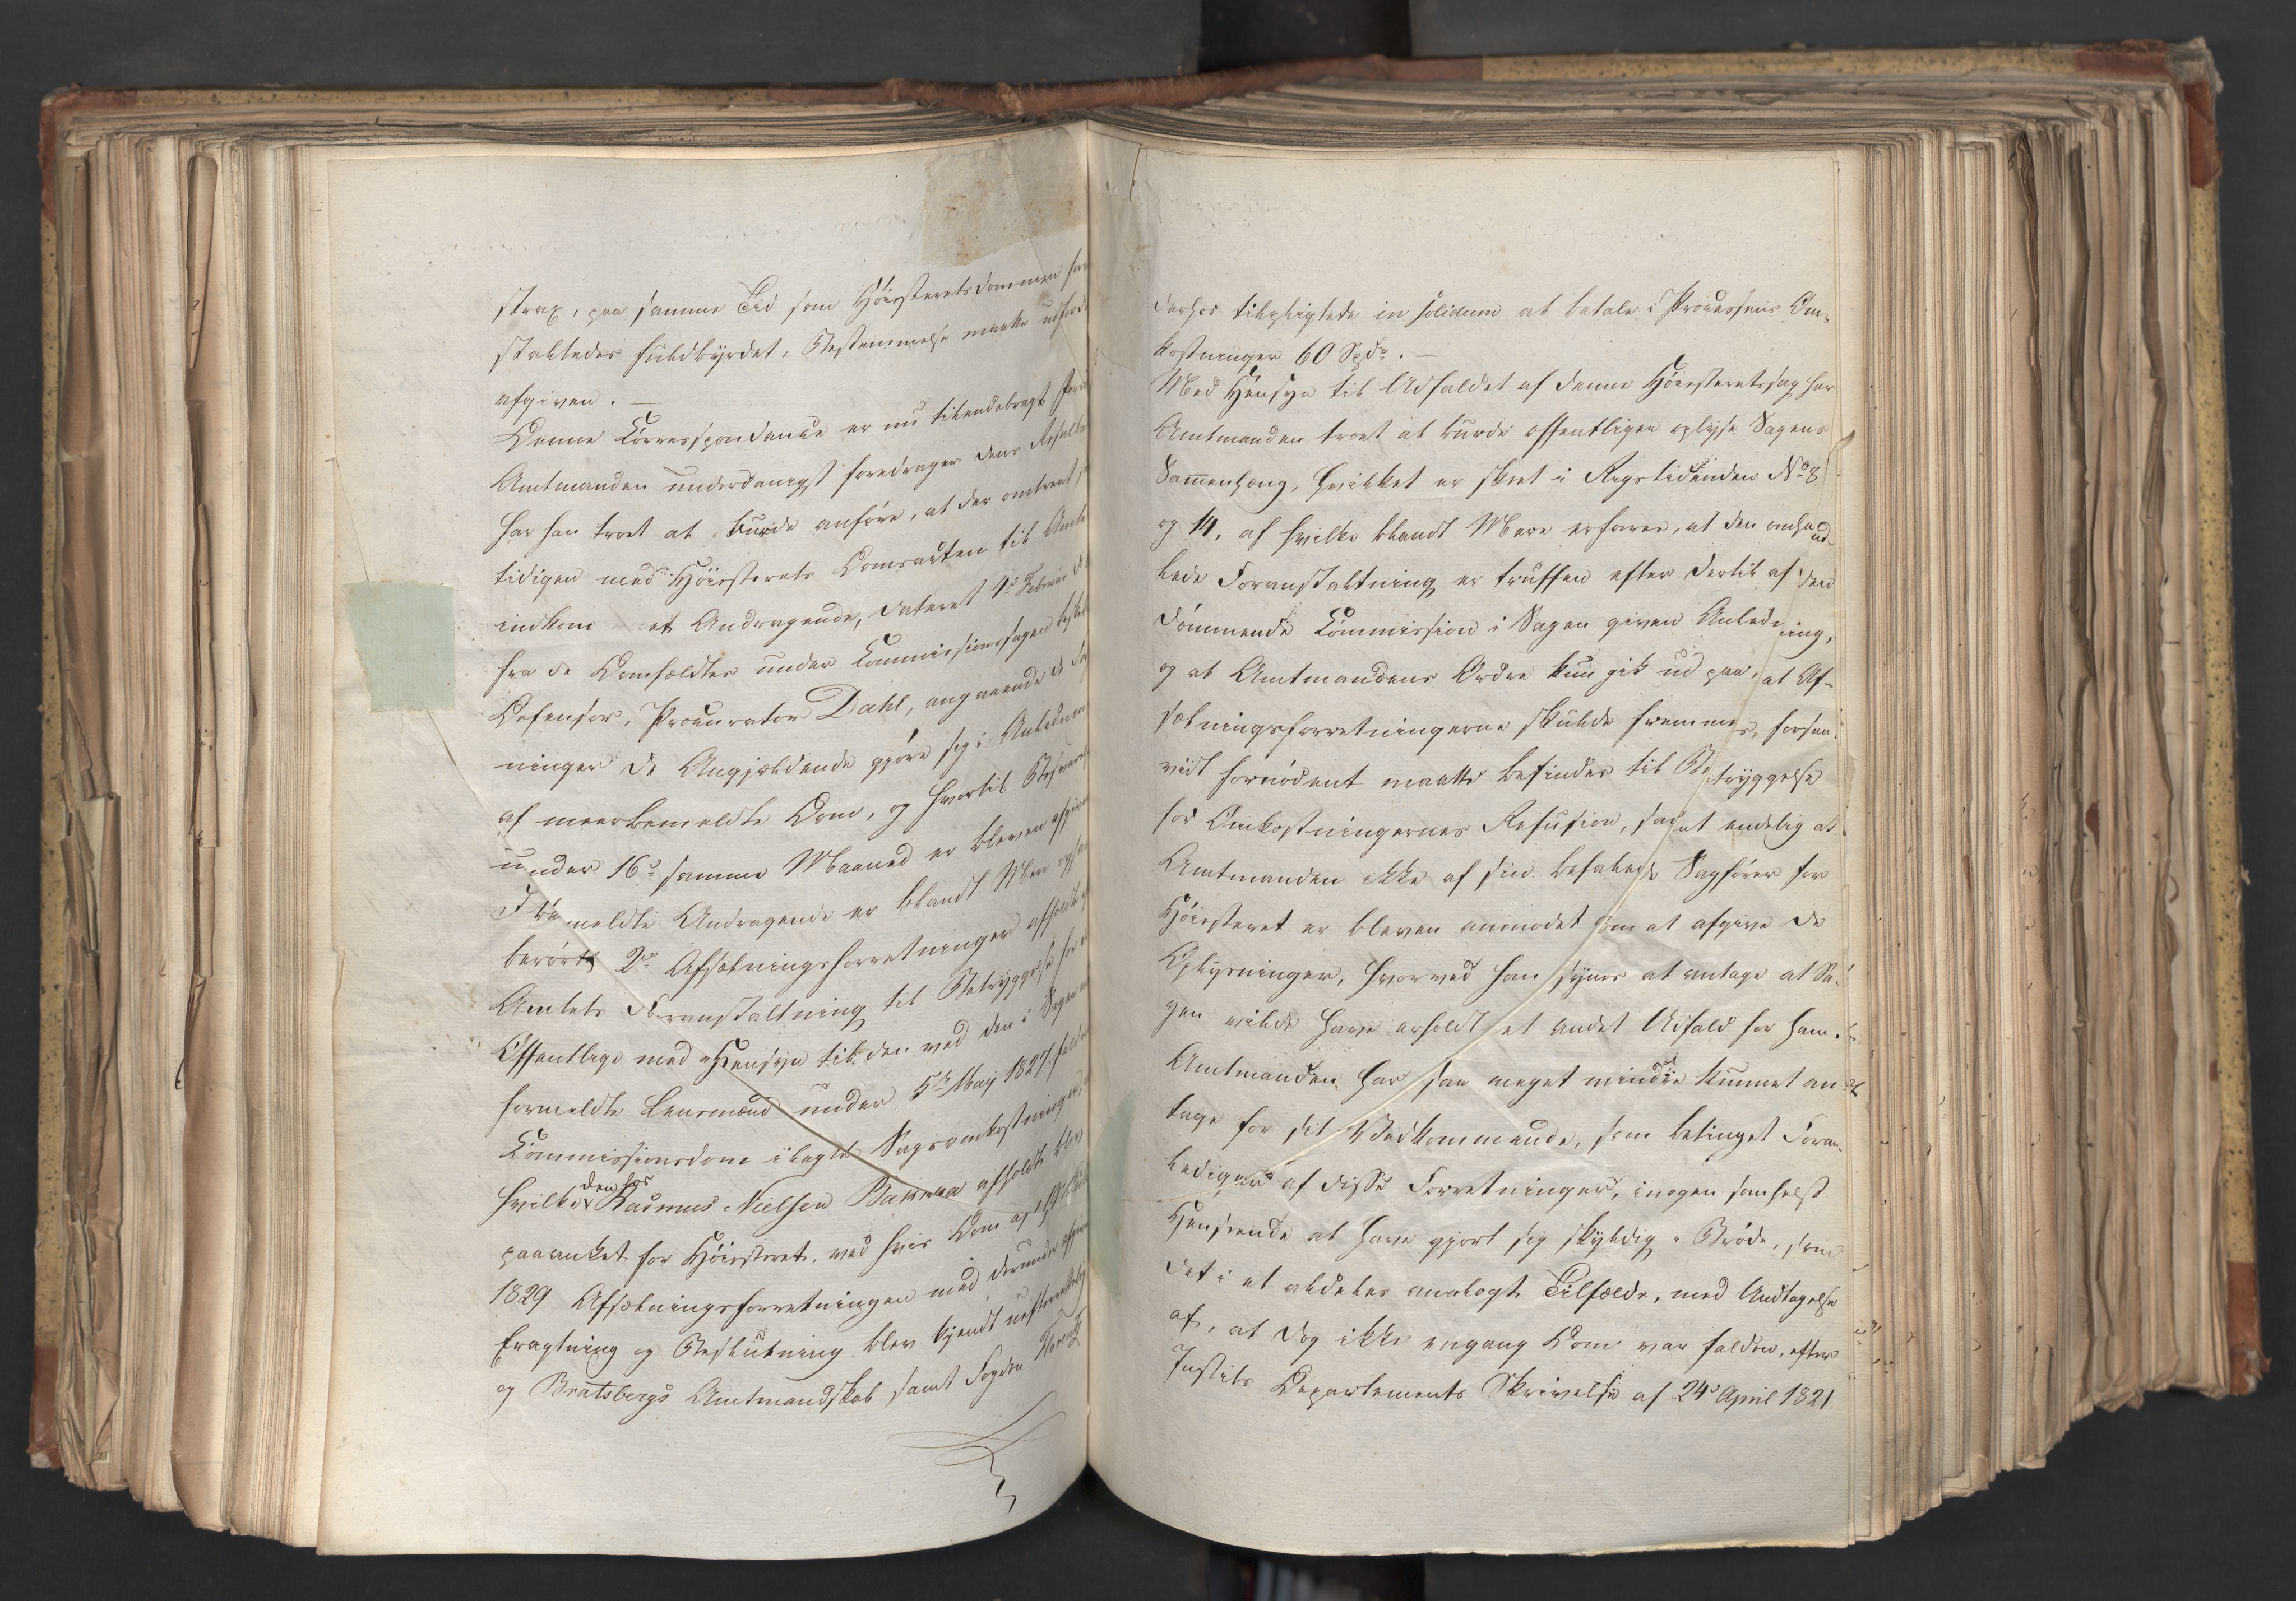 strax, paa samme Tid som Höiesteretsdommen for
staltedes fuldbyrdet, Bestemmelse maatte udford
afgiven. —
Denne Correspondance er nu tilendebragt
Amtmanden underdanigst foredrager dens Resulta
har han troet at burde anföre, at der omtrent
tidigen med Höiesterets Domsacten til Amte
indkom et Andragende, dateret 4de Februar
fra de Domfældtes under Commissionssagen
Defensor, Procurator Dahl, angaaende de
ninger de Angjældende gjöre sig i Anledning
af meerbemeldte Dom, og hvortil Besvarelse
under 16de samme Maaned er bleven afgiven
I bemeldte Andragende er blandt Mere ogsaa
berörte 2de Afsætningsforretninger afholdte
Amtets Foranstaltning til Betryggelse for
Offentlige med Hensyn til den ved den i Sagen
formeldte Lensmænd under 5te May 1827 faldne
Commissionsdom ilagte Sagsomkostninger,
hvilke den hos Rasmus Nielsen Bakka afholdte blev
paaanket for Höiesteret, ved hvis Dom af
1829 Afsætningsforretningen med derunder
fragtning og Beslutning blev kjendt uefterrettelig
og Bratsbergs Amtmandskab samt Fogden
derhos tilpligtede in solidum at betale i Processens Om-
kostninger 60 Spdr. —
Med Hensyn til Udfaldet af denne Höiesteretssag har
Amtmanden troet at burde offentligen oplyse Sagens
Sammenhæng, hvilket er skeet i Rigstidenden No 8
og 14, af hvilke blandt Mere erfares, at den omhand-
lede Foranstaltning er truffen efter dertil af den
dömmende Commission i Sagen given Anledning,
og at Amtmandens Ordre kun gik ud paa, at Af-
sætningsforretningerne skulde fremmes, forsaa-
vidt fornödent maatte befindes til Betryggelse
for Omkostningernes Refusion, samt endelig at
Amtmanden ikke af sin befalede Sagförer for
Höiesteret er bleven anmodet om at afgive de
Oplysninger, hvorved han synes at antage at Sa-
gen vilde have erholdt et andet Udfald for ham.
Amtmanden har saa meget mindre kunnet an-
tage for sit Vedkommende, som betinget Foran-
lediger af disse Forretninger, i nogen somhelst
Henseende at have gjort sig skyldig i Bröde, som
det i et aldeles analogt Tilfælde, med Undtagelse
af, at dog ikke engang Dom var falden, efter
Justits Departements Skrivelse af 24de April 1821